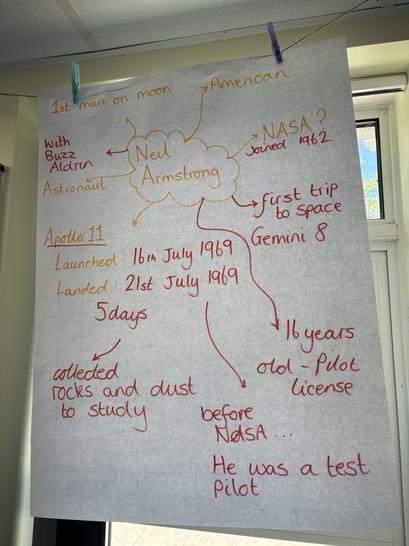 1st man on moon
American
With
Buzz
Aldrin
Neil
Armstrong
NASA?
Joined 1962
Astronaut
first trip
to space
Gemini 8
Apollo 11
Launched 16th July 1969
Landed 21st July 1969
5days
16 years
old - Pilot
license
collected
rocks and dust
to study
before
NASA ...
He was a test
Pilot